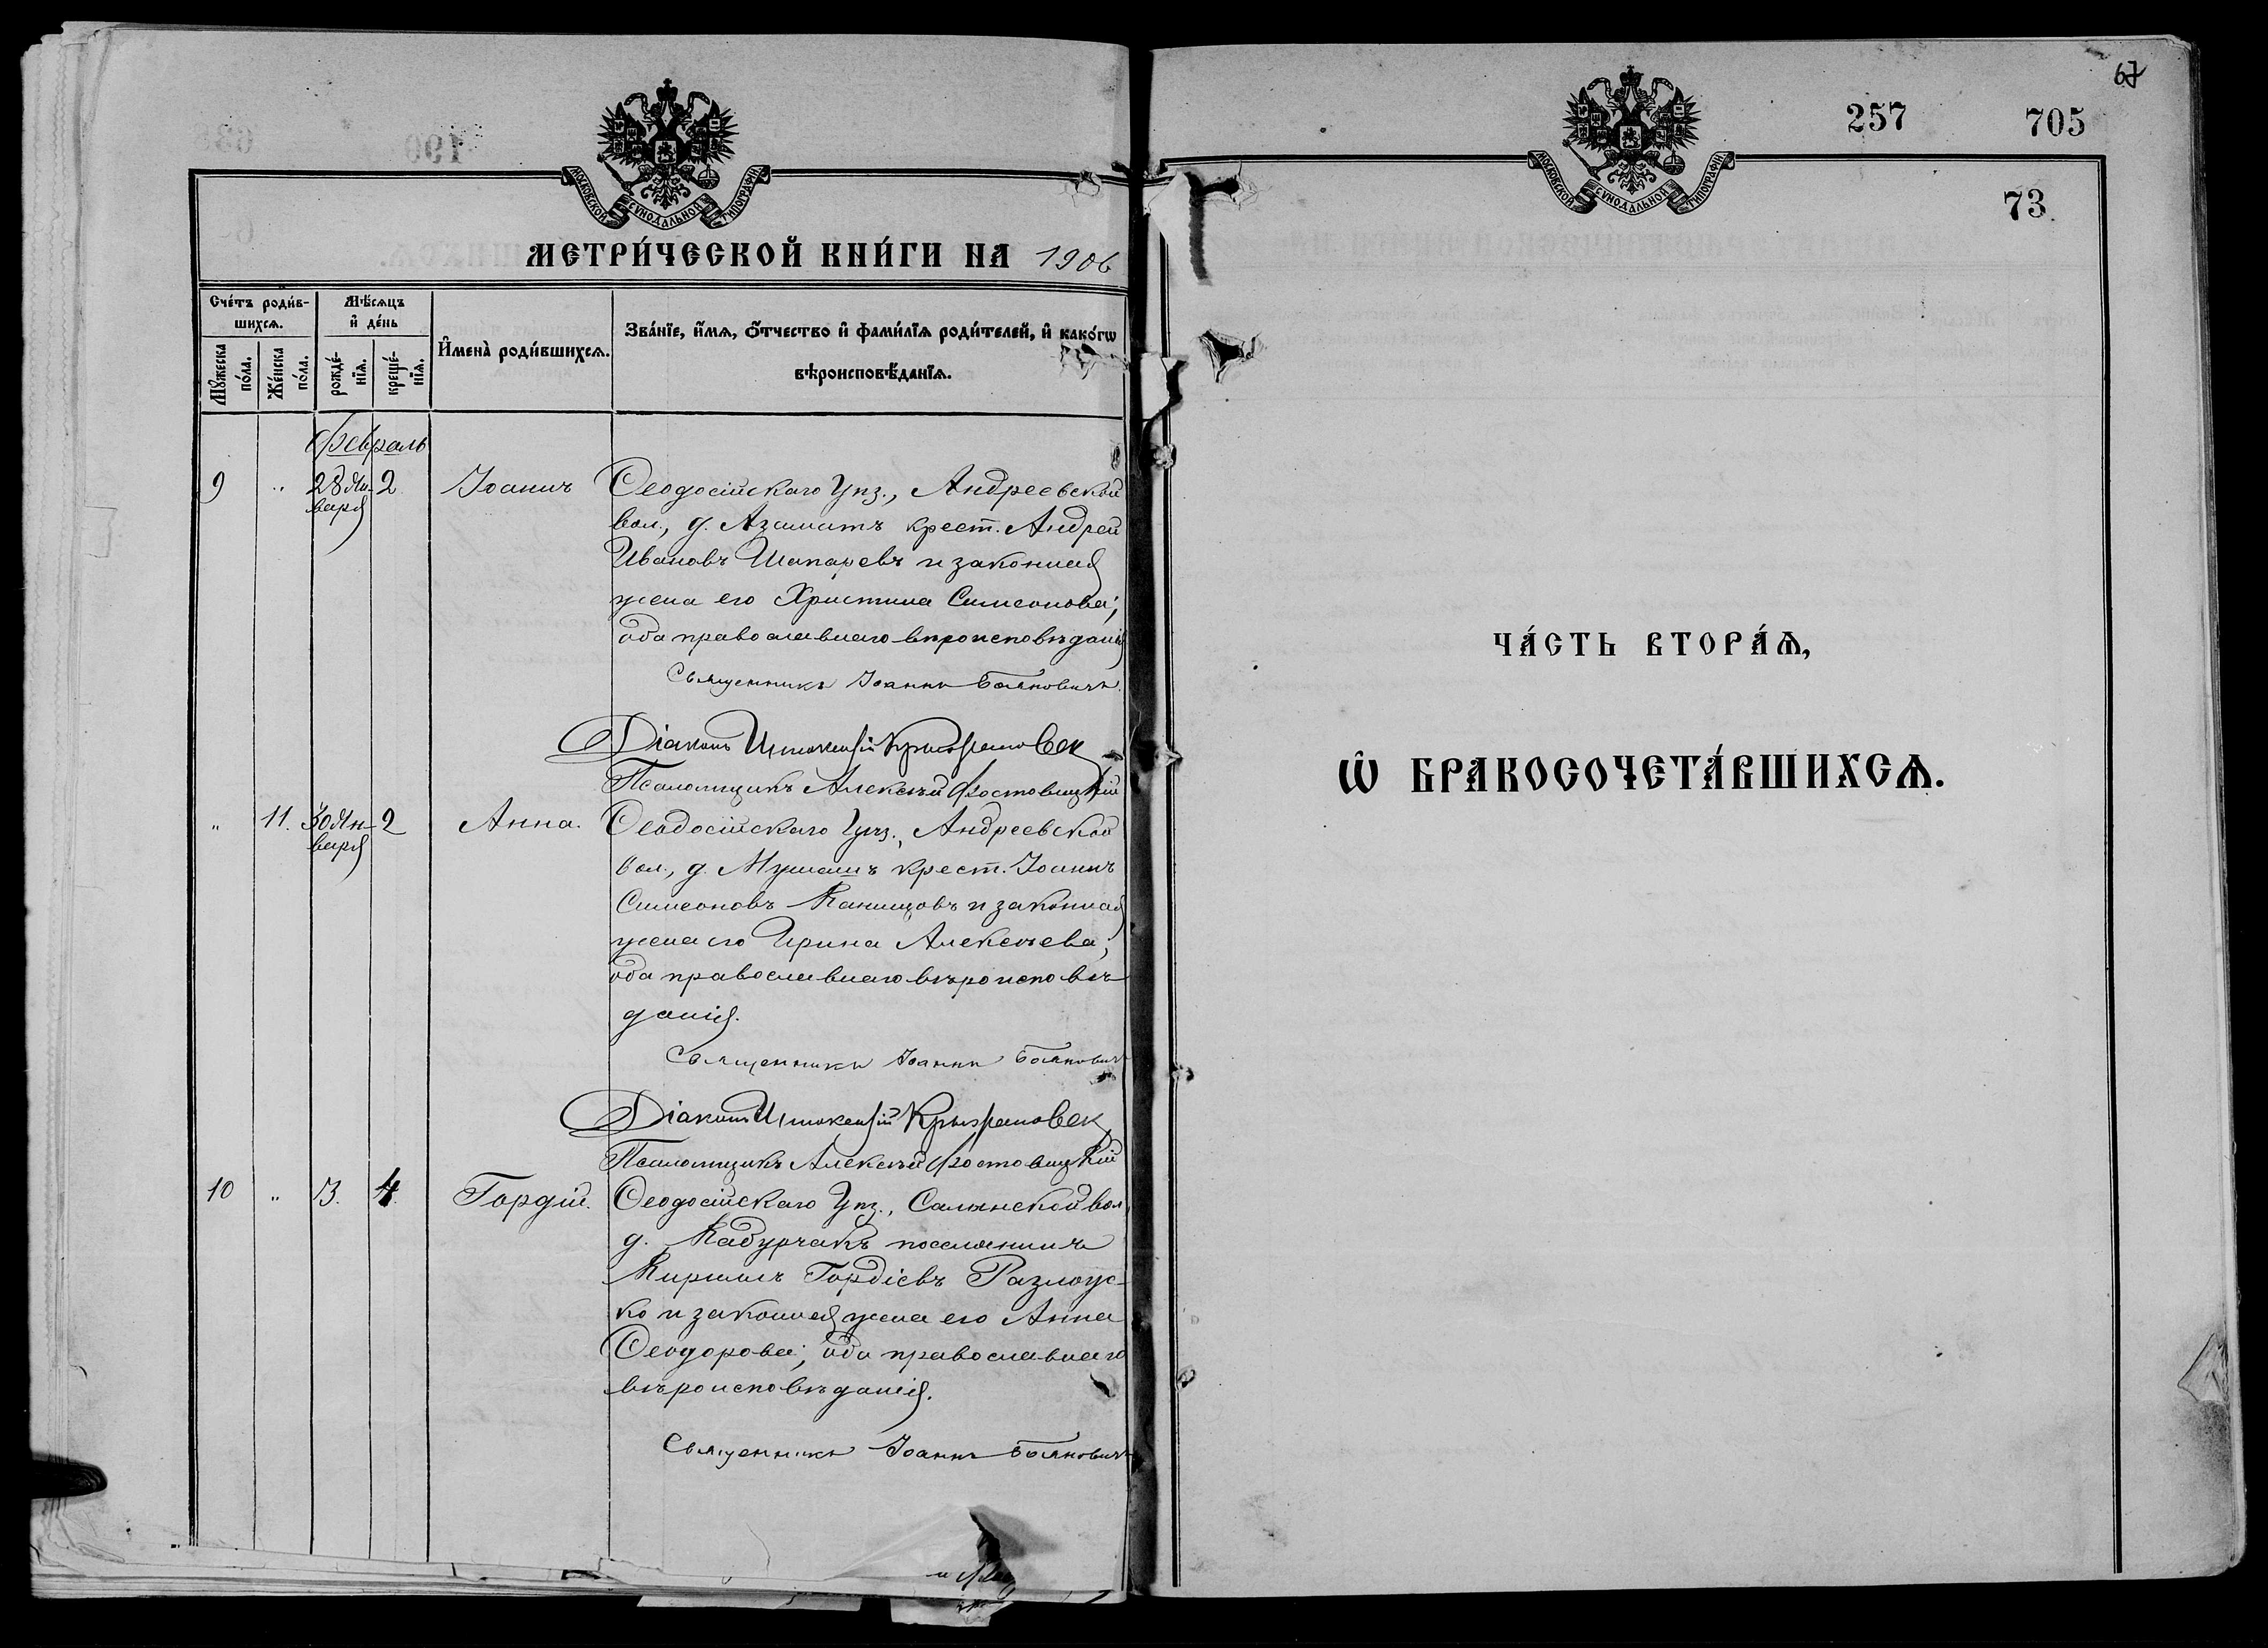 МОСКОВСКОЙ СѴНОДАЛЬНОЙ ТИПОГРАФІИ
МЕТРИ́ЧЕСКОЙ КНИ́ГИ НА 1906
Сче́тъ роди́в-
шихсѧ.
Мѣ́сѧцъ
и҆ де́нь
И҆мена̀ роди́вшихсѧ.
Зва́нїе, и҆́мѧ, ѻ҆́тчество и҆ фами́лїѧ роди́телей, и҆ како́гѡ
вѣроисповѣ́данїѧ.
Мꙋ́жеска
по́ла.
Же́нска
по́ла.
рожде́-
нїѧ.
креще́-
нїѧ.
Февраль
9 " 28 Ян- 2 Іоаннъ Ѳеодосійскаго Уѣз., Андреевской
варя
вол., д. Азаматъ крест. Андрей
Ивановъ Шапаревъ и законная
жена его Христина Симеонова;
оба православнаго вѣроисповѣданія
Священникъ Іоаннъ Бояновичъ.
Діаконъ
Псаломщикъ Алексѣй Ростовицкій
" 11. 30 Ян- 2 Анна. Ѳеодосійскаго Уѣз., Андреевской
варя
вол., д. крест. Іоаннъ
Симеоновъ и законная
жена его Ирина Алексѣева;
оба православнаго вѣроисповѣ-
данія.
Священникъ Іоаннъ Бояновичъ
Діаконъ
Псаломщикъ Алексѣй Ростовицкій
10 " 3. 4. Гордій. Ѳеодосійскаго Уѣз., Салынской вол.
д. Кадурчакъ поселянинъ
Кириллъ Гордіевъ
ко и законная жена его Анна
Ѳеодорова; оба православнаго
вѣроисповѣданія.
Священникъ Іоаннъ Бояновичъ
67
257 705
МОСКОВСКОЙ СѴНОДАЛЬНОЙ ТИПОГРАФІИ
73
ЧА́СТЬ ВТОРА́Ѧ,
Ѽ БРАКОСОЧЕТА́ВШИХСѦ.